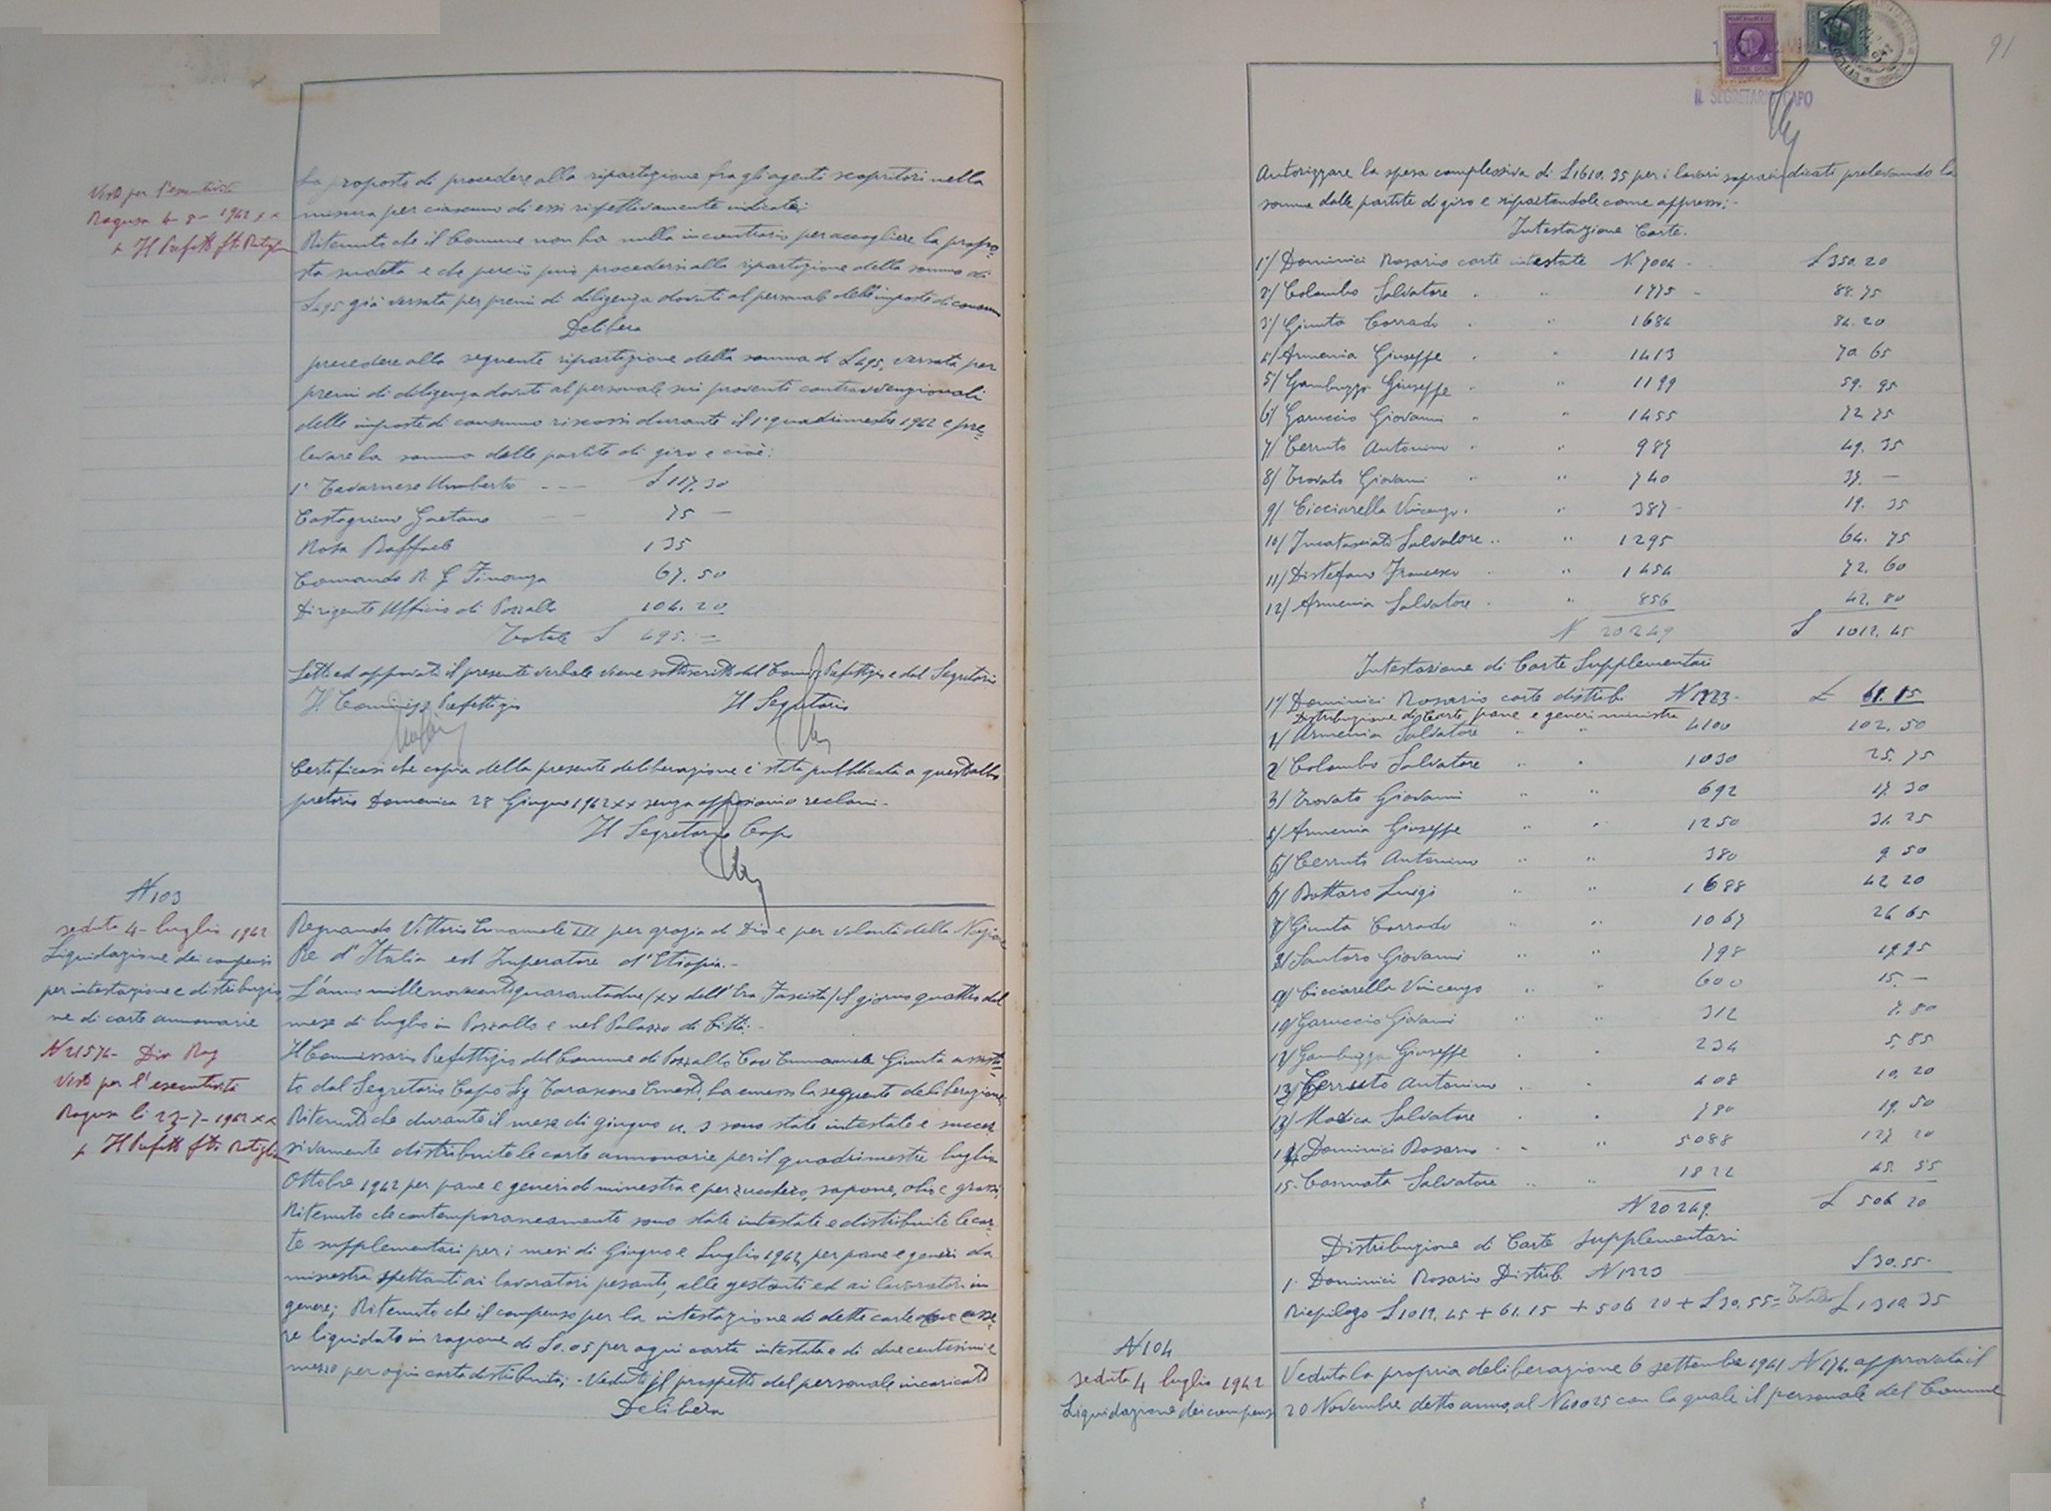 Visto per l'esecutività
Ragusa 4-8-1942 XX
Il Prefetto
la proposta di procedere alla ripartizione fra gli agenti scopritori nella
misura per ciascuno di essi rispettivamente indicata;
Ritenuto che il Comune non ha nulla in contrario per accogliere la propo=
sta sudetta e che perciò può procedersi alla ripartizione della somma di
£ 495 già versata per premi di diligenza dovuti al personale delle imposte di consumo
Delibera
procedere alla seguente ripartizione della somma di £ 495, versata per
premi di diligenza dovuti al personale sui proventi contravvenzionali
delle imposte di consumo riscossi durante il 1° quadrimestre 1942 e pre=
levare la somma dalle partite di giro e cioè:
1° Tavarnese Umberto --- £ 117.30
Castagnino Gaetano 75 —
Rosa Raffaele 135
Comando R. G. Finanza 67.50
Dirigente Ufficio di Pozzallo 104.20
Totale £ 495. —
Letto ed approvato il presente verbale viene sottoscritto dal Commiss. Prefettizio e dal Segretario
Il Commiss. Prefettizio Il Segretario
Certificasi che copia della presente deliberazione è stata pubblicata a quest'albo
pretorio Domenica 28 Giugno 1942 XX senza opposizioni o reclami.-
Il Segretario Capo
N 103
seduta 4 - luglio 1942
Liquidazione dei compensi
per intestazione e distribuzio
ne di carte annonarie
N 21574 - Div Rag
Visto per l'esecutività
Ragusa li 23-7-1942 XX
Il Prefetto
Regnando Vittorio Emanuele III per grazia di Dio e per volontà della Nazione
Re d'Italia ed Imperatore d'Etiopia.-
L'anno millenovecentoquarantadue (XX dell'Era Fascista) il giorno quattro del
mese di luglio in Pozzallo e nel Palazzo di Città.-
Il Commissario Prefettizio del Comune di Pozzallo Cav Emmanuele Giunta assisti=
to dal Segretario Capo Sg Tarascone Ernesto, ha emesso la seguente deliberazione,
Ritenuto che durante il mese di giugno u. s sono state intestate e succes
sivamente distribuite le carte annonarie per il quadrimestre luglio
Ottobre 1942 per pane e generi di minestra e per zucchero, sapone, olio e grassi
Ritenuto che contemporaneamente sono state intestate e distribuite le car=
te supplementari per i mesi di Giugno e Luglio 1942, per pane e generi da
minestra spettanti ai lavoratori pesanti, alle gestanti ed ai lavoratori in
genere; Ritenuto che il compenso per la intestazione di dette carte deve esse=
re liquidato in ragione di £ 0.05 per ogni carta intestata e di due centesimi e
mezzo per ogni carta distribuita; - Veduto il prospetto del personale incaricato
Delibera
91
IL SEGRETARIO CAPO
Autorizzare la spesa complessiva di £ 1610.35 per i lavori sopraindicati prelevando la
somma dalle partite di giro e ripartendole come appresso:-
Intestazione Carte.
1°/ Dominici Rosario carte intestate N 7004 - £ 350.20
2/ Colombo Salvatore " " 1775 - 88.75
3°/ Giunta Corrado " " 1684 84.20
4/ Armenia Giuseppe " " 1413 70.65
5/ Gambuzza Giuseppe " " 1199 59.95
6/ Garuccio Giovanni " " 1455 72.75
7/ Cerruto Antonino " " 987 49.35
8/ Trovato Giovanni " " 740 37. —
9/ Cicciarella Vincenzo " " 387 - 19.35
10/ Incatasciato Salvatore " " 1295 64.75
11/ Distefano Francesco " " 1454 72.60
12/ Armenia Salvatore " " 856 42.80
N 20249 £ 1012.45
Intestazione di Carte Supplementari
1°/ Dominici Rosario carte distrib. N 1223 - £ 61.15
Distribuzione di Carte pane e generi minestra
1/ Armenia Salvatore " " 4100 102.50
2/ Colombo Salvatore " " 1030 25.75
3/ Trovato Giovanni " " 692 17.30
4/ Armenia Giuseppe " " 1250 31.25
5/ Cerruto Antonino " " 380 9.50
6/ Bottaro Luigi " " 1688 42.20
7/ Giunta Corrado " " 1067 26.65
8/ Santoro Giovanni " " 798 19.95
9/ Cicciarella Vincenzo " " 600 15. —
10/ Garuccio Giovanni " " 312 7.80
11/ Gambuzza Giuseppe " " 234 5.85
12/ Cerruto Antonino " " 408 10.20
13/ Modica Salvatore " " 780 19.50
14/ Dominici Rosario " " 5088 127.20
15- Cannata Salvatore " " 1822 45.55
N 20249. £ 506.20
Distribuzione di Carte Supplementari
1. Dominici Rosario Distrib. N 1223 £ 30.55-
Riepilogo £ 1012.45 + 61.15 + 506.20 + £ 30.55 = Totale £ 1310.35
N 104
seduta 4 luglio 1942
Liquidazione dei compensi
Veduta la propria deliberazione 6 settembre 1941 N 174 approvata il
20 Novembre detto anno, al N 40025 con la quale il personale del Comune